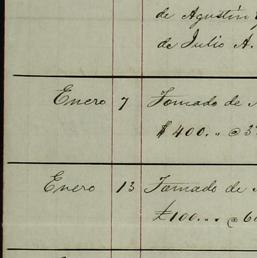 de Agustín
de Julio A.
Enero 7 Tomado de
$400.. @ 5
Enero 13 Tomado de
£100... @ 60